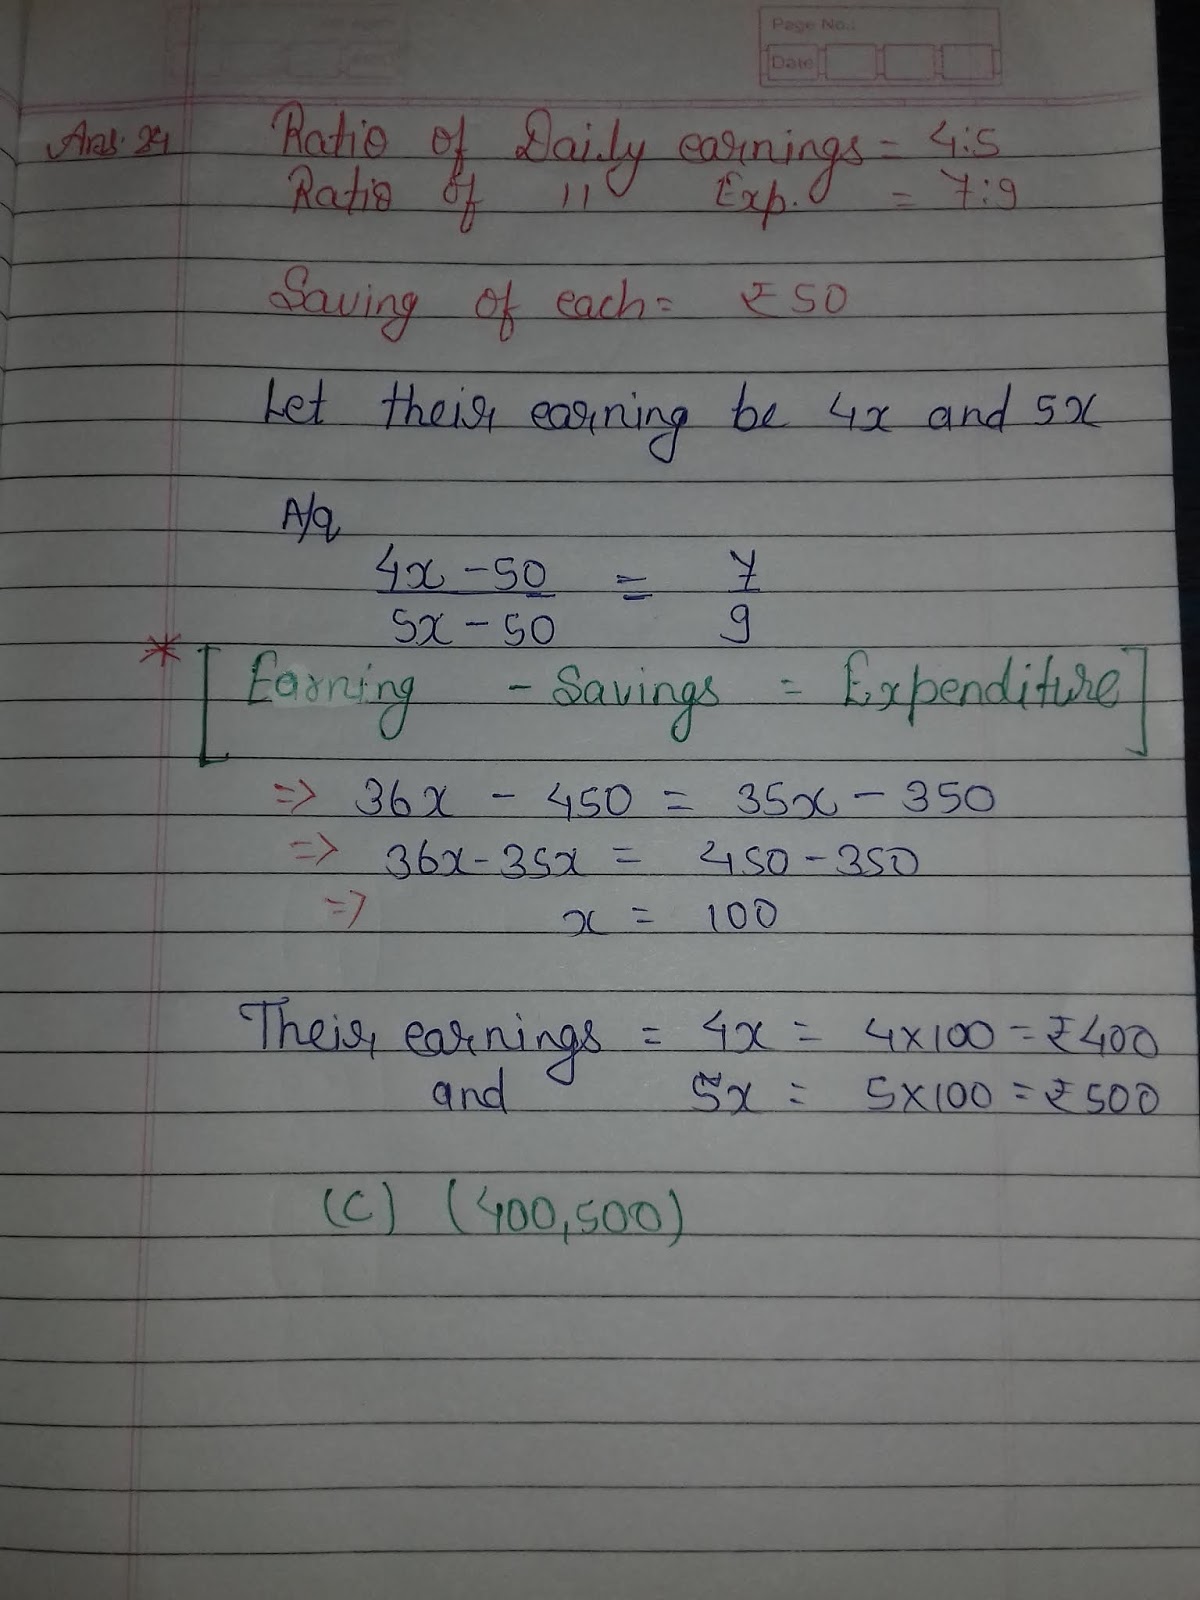 Page No.:
Date
Ans. 24 Ratio of Daily earnings = 4:5
Ratio of 11 Exp. = 7:9
Saving of each = ₹ 50
Let their earning be 4x and 5x
A/q
4x - 50 = 7
5x - 50 9
* [Earning - Savings = Expenditure]
=> 36x - 450 = 35x - 350
=> 36x - 35x = 450 - 350
=> x = 100
Their earnings = 4x = 4×100 = ₹400
and 5x = 5×100 = ₹500
(C) (400,500)